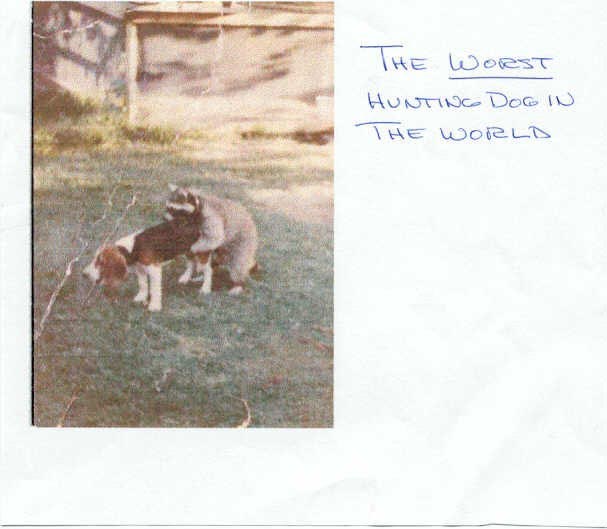 THE WORST
HUNTING DOG IN
THE WORLD